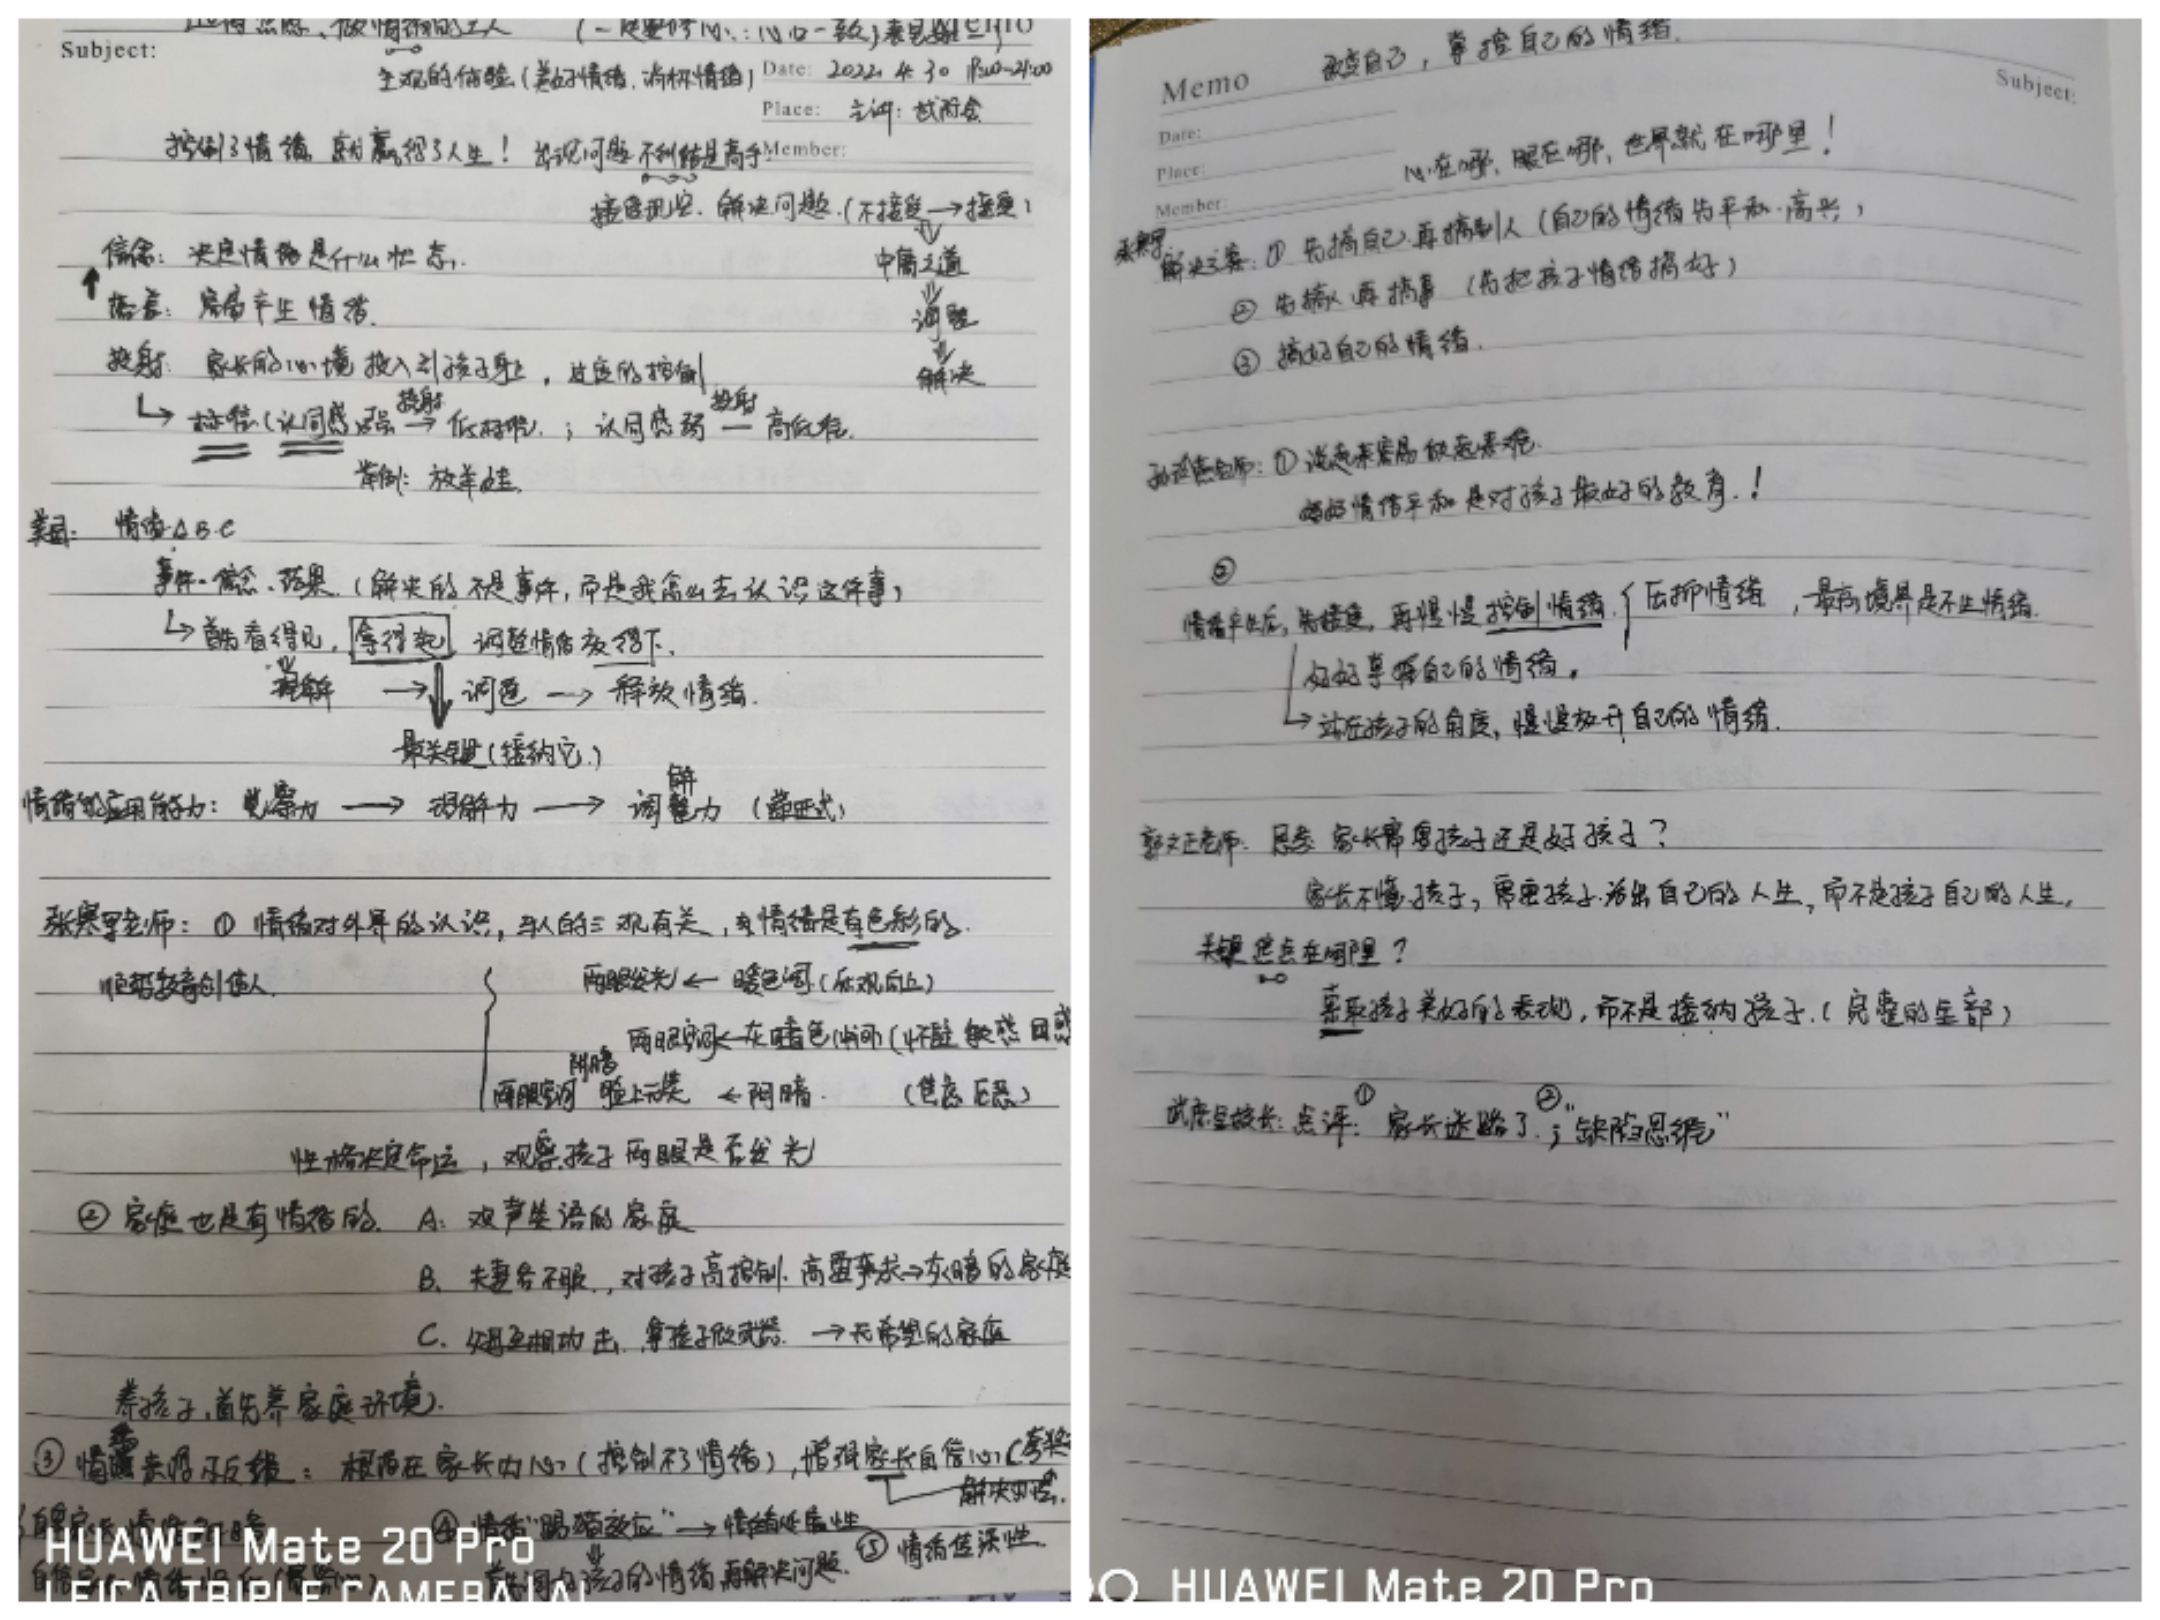 做情绪的主人 (一定要修心：心口一致)
Memo
Subject:
主观的体验(美好情绪、消极情绪)
Date: 2022. 4. 30 19:00-21:00
Place: 主讲：
Member:
控制了情绪 就赢得了人生！ 出现问题 不纠结是高手
接受现实、解决问题.(不接受→接受)
中庸之道
调整
解决
信念: 决定情绪是什么状态.
语言: 容易产生情绪.
投射: 家长的心境投入到孩子身上，过度的控制
投射 投射
标准(认同感强→低标准；认同感弱—高标准.
案例: 放羊娃.
美国: 情绪ABC
事件、信念、结果.(解决的不是事件，而是我怎么去认识这件事)
首先看得见, 拿得起 调整情绪放得下.
理解 → 调适 → 释放情绪.
最关键(接纳它.)
解
情绪的应用能力: 觉察力 → 理解力 → 调整力
张寒军老师: ① 情绪对外界的认识, 与人的三观有关, 情绪是有色彩的.
教育创使人.
两眼发光 ← 暖色调.(乐观向上)
两眼空洞←灰暗色调(怀疑 敏感 困惑
阴暗
两眼空洞 脸上无笑 ←阴暗. (焦虑 厌恶)
性格决定命运, 观察孩子两眼是否发光
② 家庭也是有情绪的. A: 欢声笑语的家庭
B. 夫妻合不服, 对孩子高控制. 高要求→灰暗的家庭
C. 父母互相攻击, 拿孩子做武器. →无希望的家庭
养孩子,首先养家庭环境).
③ 情绪 : 根源在家长内心(控制不了情绪), 增强家长自信心(夸奖
解决
④ 情绪"踢猫效应"→情绪
⑤ 情绪传染性.
孩子的情绪再解决问题.
HUAWEI Mate 20 Pro
LEICA TRIPLE CAMERA | AI
改变自己, 掌控自己的情绪.
Memo
Subject:
Date:
Place:
Member:
心在哪, 眼在哪, 世界就在哪里！
张寒军
解决方案: ① 先搞自己 再搞别人 (自己的情绪为平和.高兴)
② 先搞人 再搞事 (先把孩子情绪搞好)
③ 搞好自己的情绪.
老师: ① 说起来容易做起来难.
妈妈情绪平和是对孩子最好的教育.！
②
情绪产生后, 先接受, 再慢慢控制情绪. 压抑情绪 , 最高境界是不生情绪.
好好掌握自己的情绪.
站在孩子的角度, 慢慢放开自己的情绪.
郭文正老师: 思考 家长需要孩子还是好孩子？
家长不懂孩子, 需要孩子活出自己的人生, 而不是孩子自己的人生.
关键焦点在哪里？
索取孩子美好的表现, 而不是接纳孩子.(完整的全部)
校长: 点评: ① 家长迷路了. ; ② "缺陷思维"
HUAWEI Mate 20 Pro